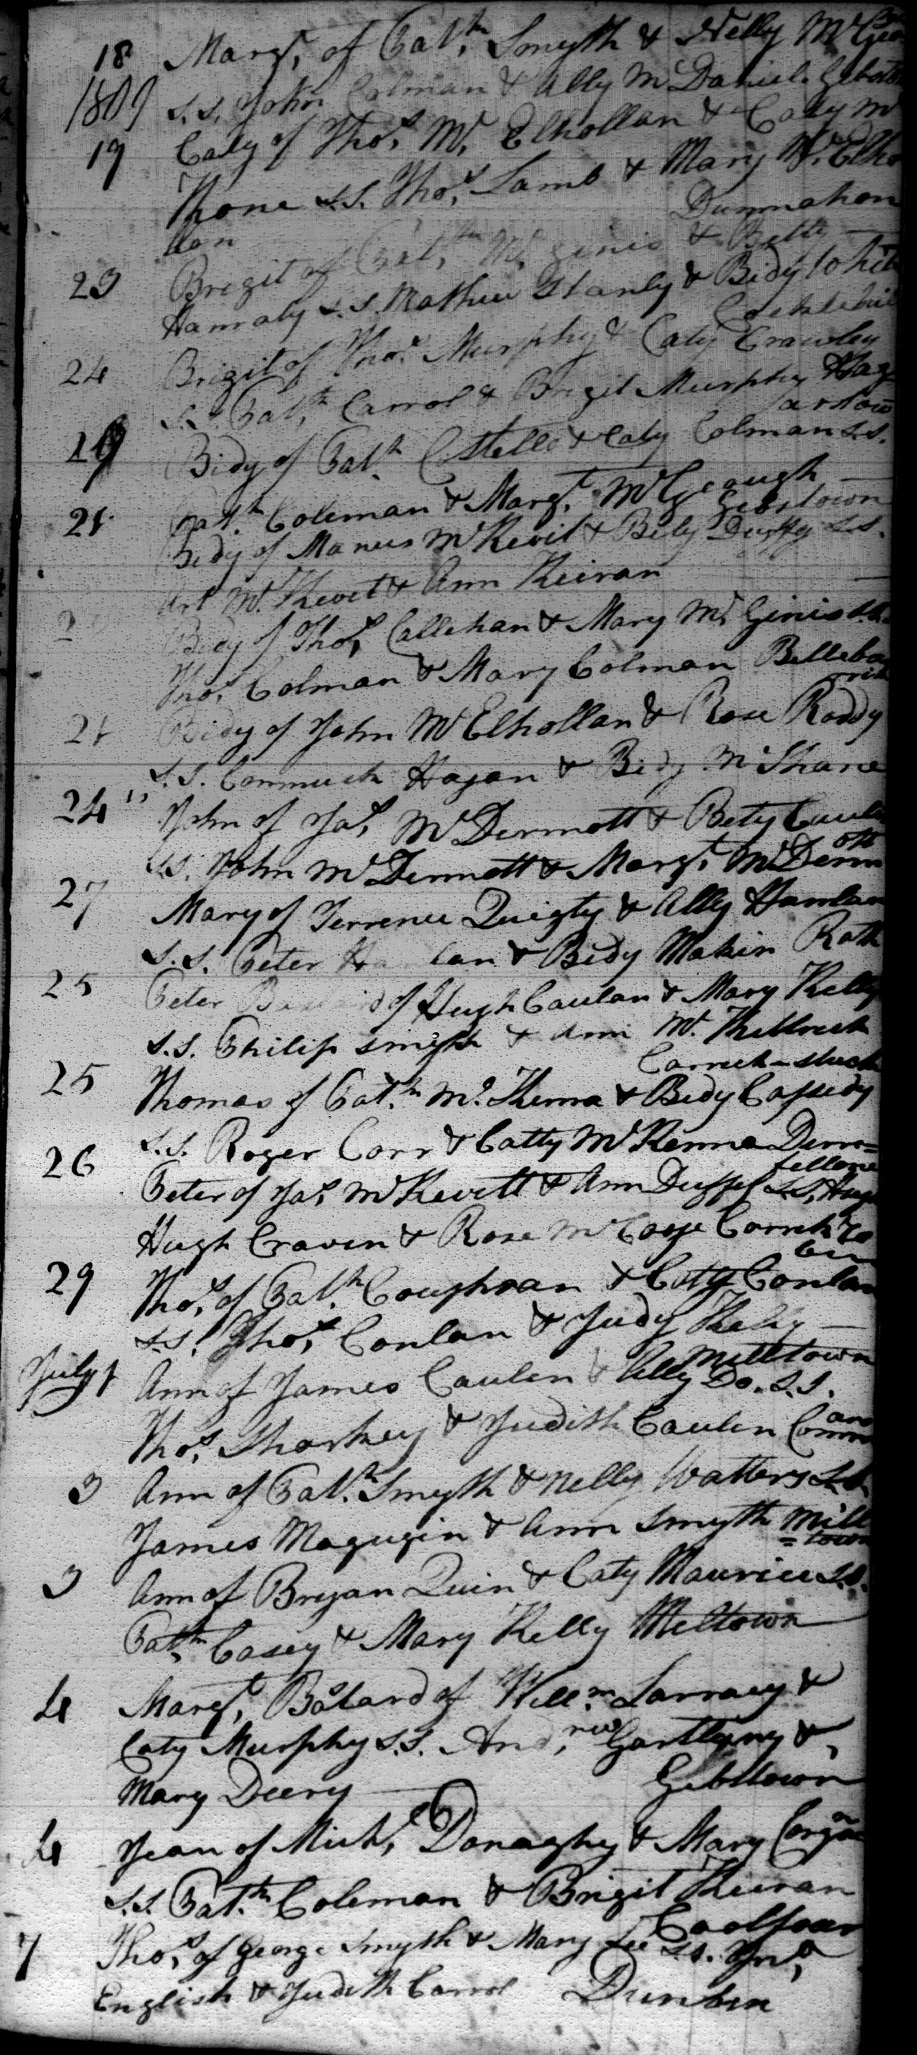 18 Margt, of Patth, Smyth & Nelly McGeo
1809 s.s. John Colman & Ally McDaniel Gibstow
19 Caty of Thos, Mc, Elhollan & Caty Mc
Khone s.s. Thos, Lamb & Mary McElho
Dunmahon
llan
23 Bregit of Patth, Mc, Ginis & Bette
Hamraty s.s. Mathew Stanly & Bidy White
24 Brigit of Thos. Murphy & Caty Crawley
s.s. Patth, Carrol & Brigit Murphy Hag
arstow
29 Bidy of Patth Costello & Caty Colman s.s.
Patth, Coleman & Margt, McGeough
Gibstown
21 Bidy of Manus McKevit & Bidy Duffy s.s.
Art Mc Kevet & Ann Keiran
2 Bidy of Thos, Callehan & Mary Mc Ginis s.s.
Thos, Colman & Mary Colman Belleba
rrick
21 Bidy of John McElhollan & Rose Roddy
s.s. Conmuck Hagan & Bidy McShane
24 " John of Jas, McDermott & Bety Caulan
s.s. John McDermott & Margt, McDerm
ott
27 Mary of Terrence Quigly & Ally Hanlan
s.s. Peter Hanlan & Bidy Makin Rath
25 Peter Bastard of Hugh Caulan & Mary Kelly
s.s. Philip Smyth & Ann Mc. Kittrick
Carrick-
25 Thomas of Patth Mc. Kenna & Bidy Cassidy
s.s. Roger Corr & Catty McKenna Dunn=
fellone
26 Peter of Jas, McKevett & Ann Duffy s.s. Hugh
Hugh Craven & Rose McCooge Carrick Ro
bin
29 Thos, of Patth. Coughran & Coty Conlan
s.s. Thos, Conlan & Judy Kelly
Milltown
July 1 Ann of James Caulen & Ally Do. s.s.
Thos, Sharkey & Judith Caulen Comm
ans
3 Ann of Patth. Smyth & Nelly Watters s.s.
James Magugin & Ann Smyth Mill
=town
3 Ann of Bryan Quin & Caty Maurice s.s.
Patth, Casey & Mary Kelly Miltown
4 Margt, Bastard of Willm Larracy &
Caty Murphy s.s. And,rew Gartlany &
Mary Deery Gibstown
4 Jean of Michl, Donaghy & Mary Corgan
s.s. Patth. Coleman & Brigit Keeran
Coolfoar
7 Thos, of George Smyth & Mary Lee s.s. Jno,
English & Judith Carrol Dunbin